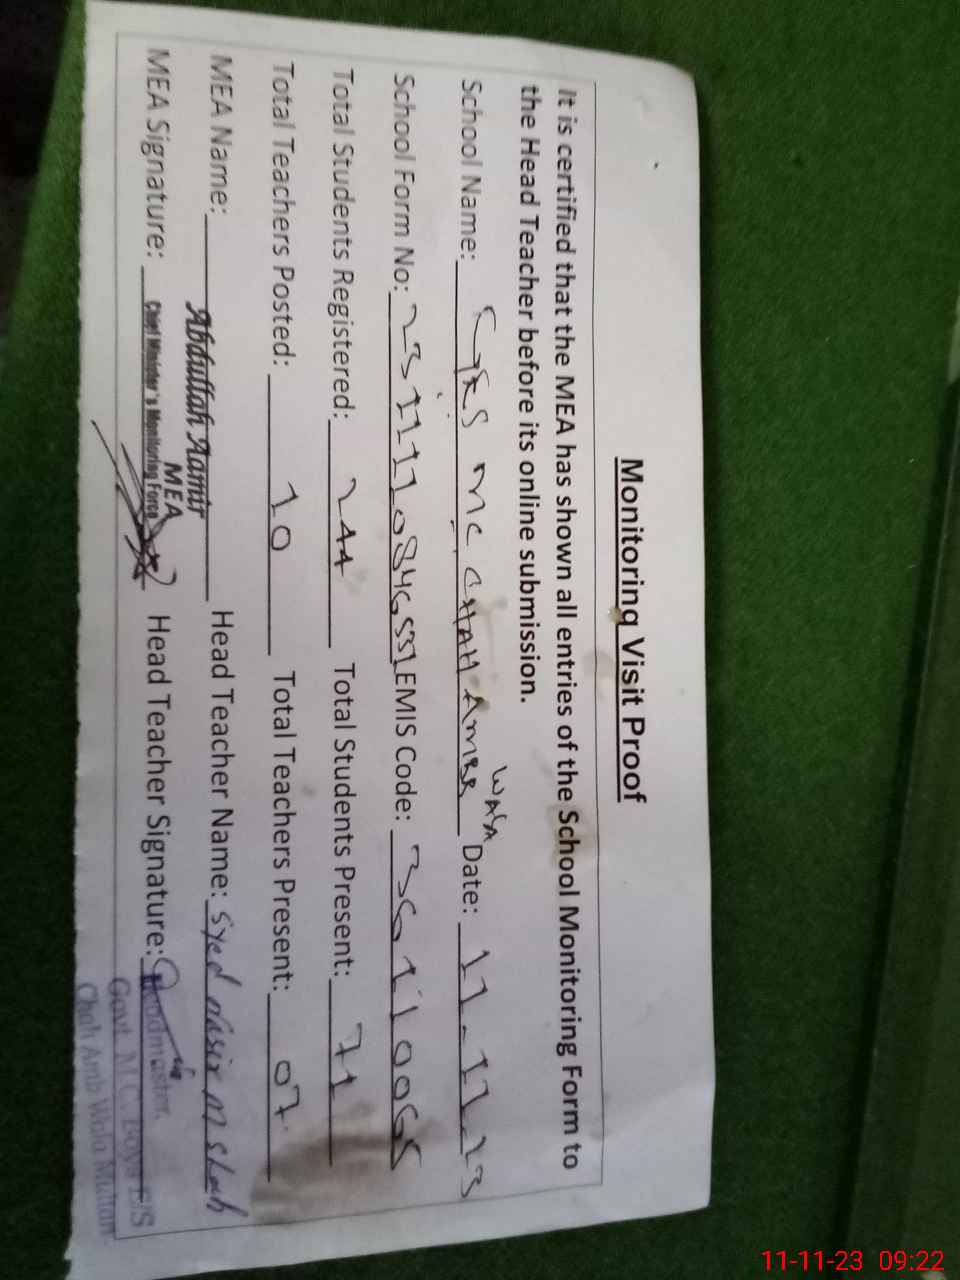 Monitoring Visit Proof
It is certified that the MEA has shown all entries of the School Monitoring Form to
the Head Teacher before its online submission.
WALA
School Name: GES MC CHAH AMBB Date: 11-11-23
School Form No: EMIS Code: 36110065
Total Students Registered: 244 Total Students Present: 71
Total Teachers Posted: 10 Total Teachers Present: 07
MEA Name: Abdullah Aamir Head Teacher Name: Syed Nasir M Shah
MEA
MEA Signature: Chief Minister's Monitoring Force Head Teacher Signature: Headmaster,
Govt. M.C. Boys E/S
Chah Amb Wala Multan
11-11-23 09:22